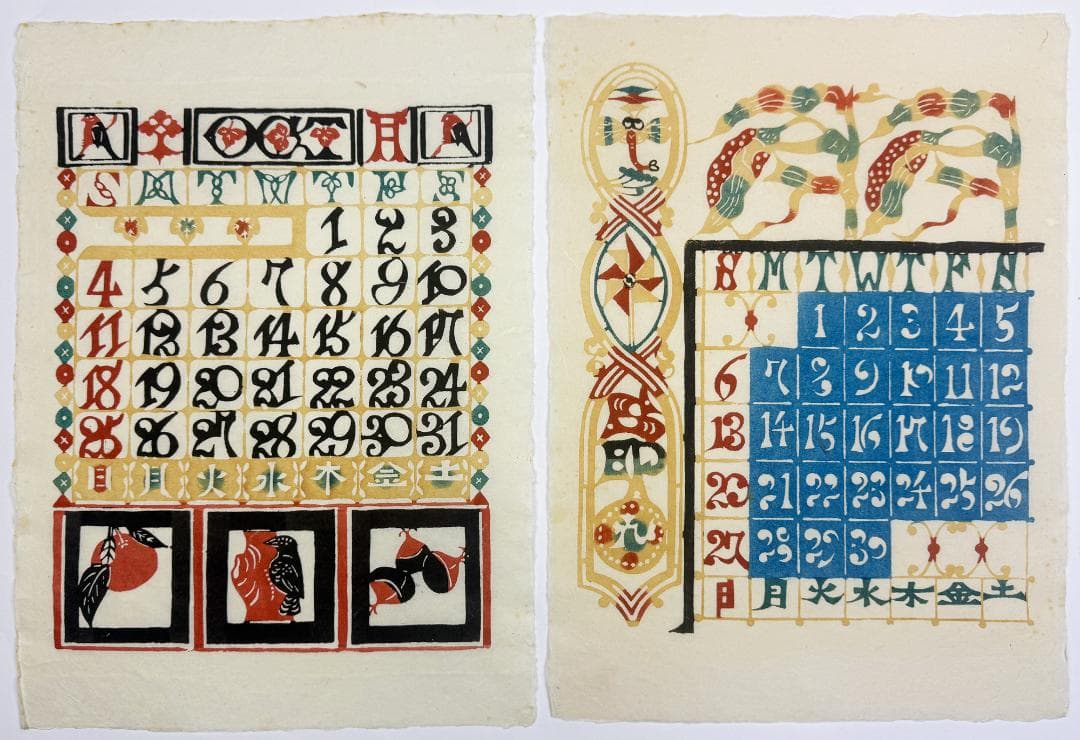 十 OCT 月
S M T W T F S
1 2 3
4 5 6 7 8 9 10
11 12 13 14 15 16 17
18 19 20 21 22 23 24
25 26 27 28 29 30 31
日 月 火 水 木 金 土
S M T W T F S
1 2 3 4 5
6 7 8 9 10 11 12
13 14 15 16 17 18 19
20 21 22 23 24 25 26
27 28 29 30
日 月 火 水 木 金 土